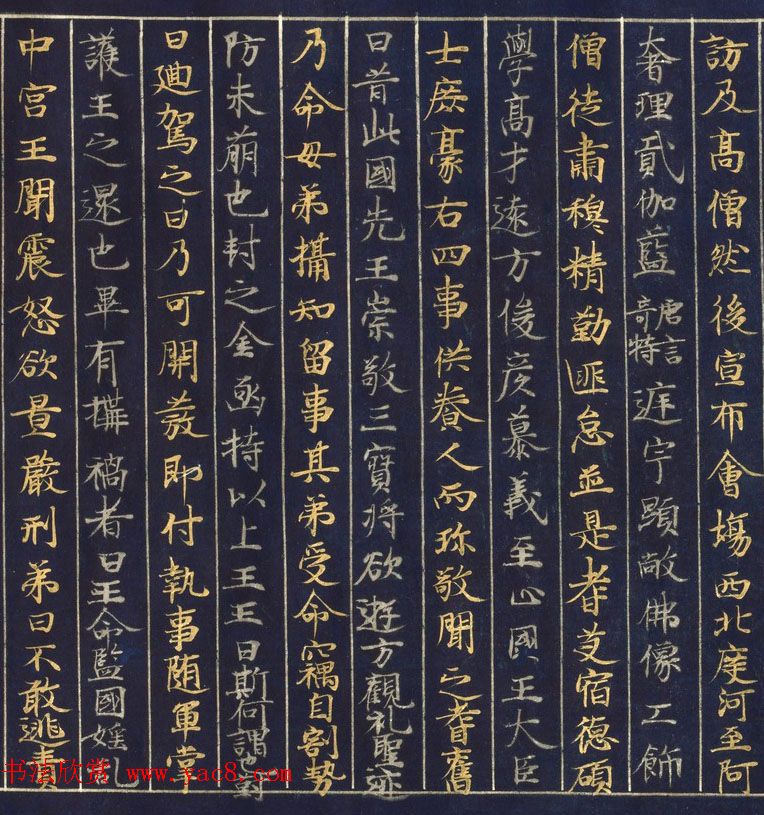 訪及高僧然後宣布會場西北度河至阿
奢理貳伽藍唐言奇特庭宇顯敞佛像工飾
僧徒肅穆精勤匪怠並是耆艾宿德碩
學高才遠方俊彥慕義至止國王大臣
士庶豪右四事供養人而弥敬聞之耆舊
曰昔此國先王崇敬三寶將欲遊方觀礼聖迹
乃命母弟攝知留事其弟受命竊自割勢
防未萠也封之金函持以上王王曰斯何謂也對
曰迴駕之日乃可開發即付執事随軍掌
護王之還也果有搆禍者曰王命監國婬乱
中宫王聞震怒欲置嚴刑弟曰不敢逃責
书法欣赏 www.yac8.com